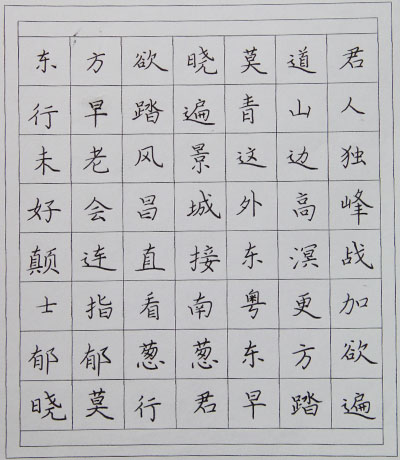 东方欲晓莫道君
行早踏遍青山人
未老风景这边独
好会昌城外高峰
颠连直接东溟战
士指看南粤更加
郁郁葱葱东方欲
晓莫行君早踏遍